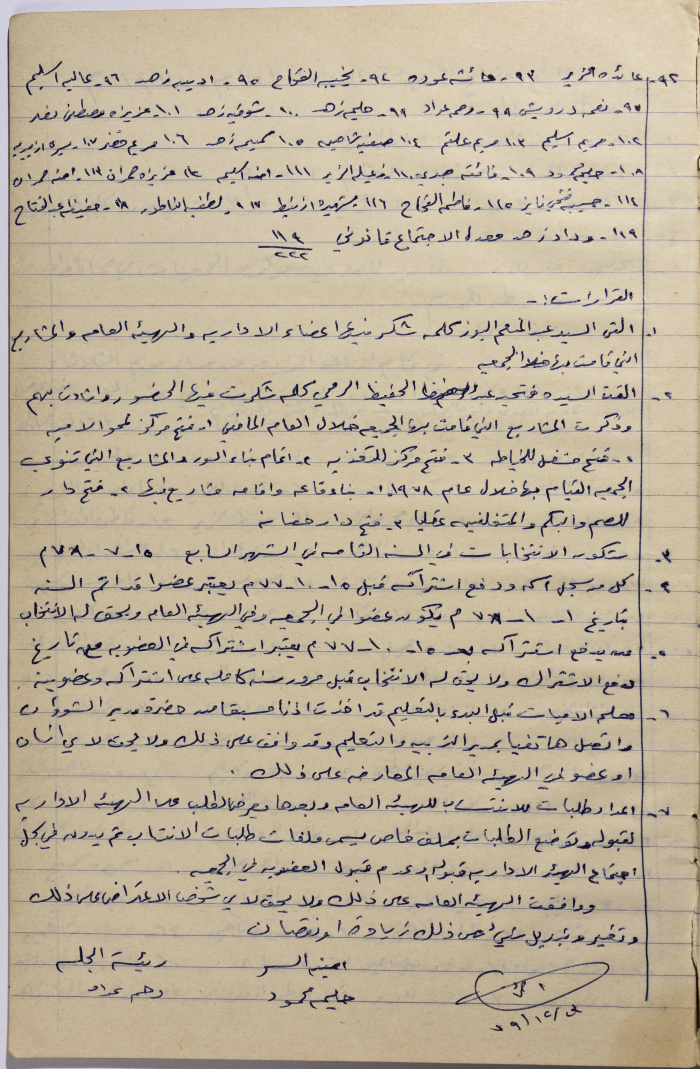 ٩٢- عائده الزير ٩٣- عائشه عوده ٩٤- نجيبه القواح ٩٥- اديبه زهد ٩٦- عاليه اسليم
٩٧- نعمه درويش ٩٨- رحمه عواد ٩٩- حليمه زهد ١٠٠- شوقيه زهد ١٠١- عزيزه مصطفى
١٠٢- مريم اسليم ١٠٣- مريم علقم ١٠٤- صفيه شاهين ١٠٥- سميره زهد ١٠٦- مريم خضر ١٠٧-
١٠٨- حليمه محمود ١٠٩- فائقه ١١٠- الزير ١١١- امنه اسليم ١١٢- عزيزه حمران ١١٣- امنه حمران
١١٤- حسيبه فايز ١١٥- فاطمه القواح ١١٦- شهيره ١١٧- لطفيه الناطور ١١٨- حفيظه عبد الفتاح
١١٩- وداد زهد وهذا الاجتماع قانوني ١١٩
٢٢٢
القرارات :-
١- القى السيد عبد المنعم كلمه شكر فيها اعضاء الاداريه والهيئه العامه والمشاريع
التي قامت بها الجمعيه
٢- القت السيده فتحيه عبد الحفيظ كلمه شكرت فيها الحضور واشادت بهم
وذكرت المشاريع التي قامت بها الجمعيه خلال العام الماضي ١- فتح مركز لمحو الاميه
٢- فتح مشغل للخياطه ٣- فتح مركز للتغذيه ٤- اتمام بناء السور والمشاريع التي تنوي
الجمعيه القيام بها خلال عام ١٩٧٨ ١- بناء قاعه واقامه مشاريع فيها ٢- فتح دار
للصم والبكم والمتخلفين عقليا ٣- فتح دار حضانه
٣- ستكون الانتخابات في السنه القادمه في الشهر السابع ١٥-٧-٧٨م
٤- كل من سجل اسمه ودفع اشتراكه قبل ١٥-١٠-٧٧م يعتبر عضوا قد اتم السنه
بتاريخ ١-١-٧٨م يكون عضوا في الجمعيه وفي الهيئه العامه ويحق له الانتخاب
٥- من يدفع اشتراكه بعد ١٥-١٠-٧٧م يعتبر اشتراكه في العضويه من تاريخ
دفع الاشتراك ولا يحق له الانتخاب قبل مرور سنه كامله على اشتراكه وعضويته
٦- معلمه الاميات قبل البدء بالتعليم قد اخذت اذنا مسبقا من حضره مدير الشؤون
واتصل هاتفيا بمدير التربيه والتعليم وقد وافق على ذلك ولا يحق لاي انسان
او عضو في الهيئه العامه المعارضه على ذلك .
٧- اعداد طلبات للانتساب للهيئه العامه وبعدها يعرض الطلب على الهيئه الاداريه
لقبوله وتوضع الطلبات بملف خاص يسمى ملفات طلبات الانتساب ثم يدون في سجل
اجتماع الهيئه الاداريه قبوله او عدم قبول العضويه في الجمعيه .
ووافقت الهيئه العامه على ذلك ولا يحق لاي شخص الاعتراض على ذلك
وتغير وتبديل شيء من ذلك زيادة او نقصان
امينه السر رئيسة الجلسه
حليمه محمود رحمه عواد